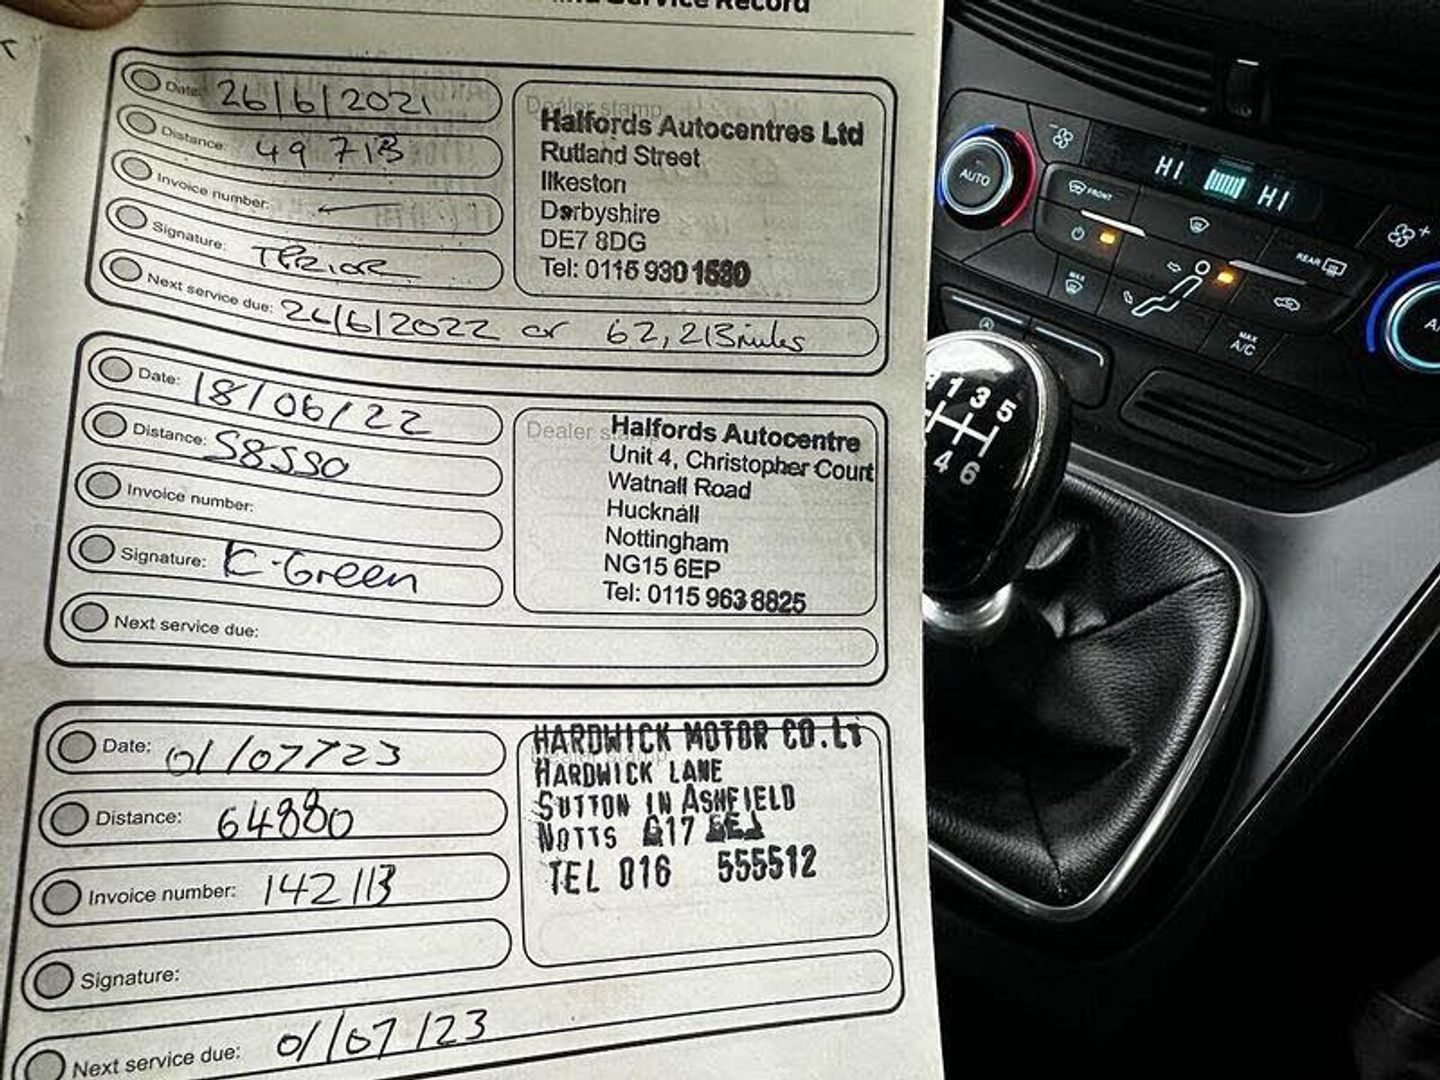 Service Record
Date: 26/6/2021
Distance: 49 713
Invoice number:
Signature: TPRIOR
Next service due: 26/6/2022 or 62,213 miles
Dealer stamp
Halfords Autocentres Ltd
Rutland Street
Ilkeston
Derbyshire
DE7 8DG
Tel: 0115 930 1580
Date: 18/06/22
Distance: 58550
Invoice number:
Signature: K-Green
Next service due:
Dealer
Halfords Autocentre
Unit 4, Christopher Court
Watnall Road
Hucknall
Nottingham
NG15 6EP
Tel: 0115 963 8825
Date: 01/07/23
Distance: 64880
Invoice number: 142113
Signature:
Next service due: 01/07/23
HARDWICK MOTOR CO. LT
HARDWICK LANE
SUTTON IN ASHFIELD
NOTTS G17
TEL 016 555512
HI HI
AUTO
FRONT
REAR
MAX
MAX
A/C
A
1 3 5
4 6